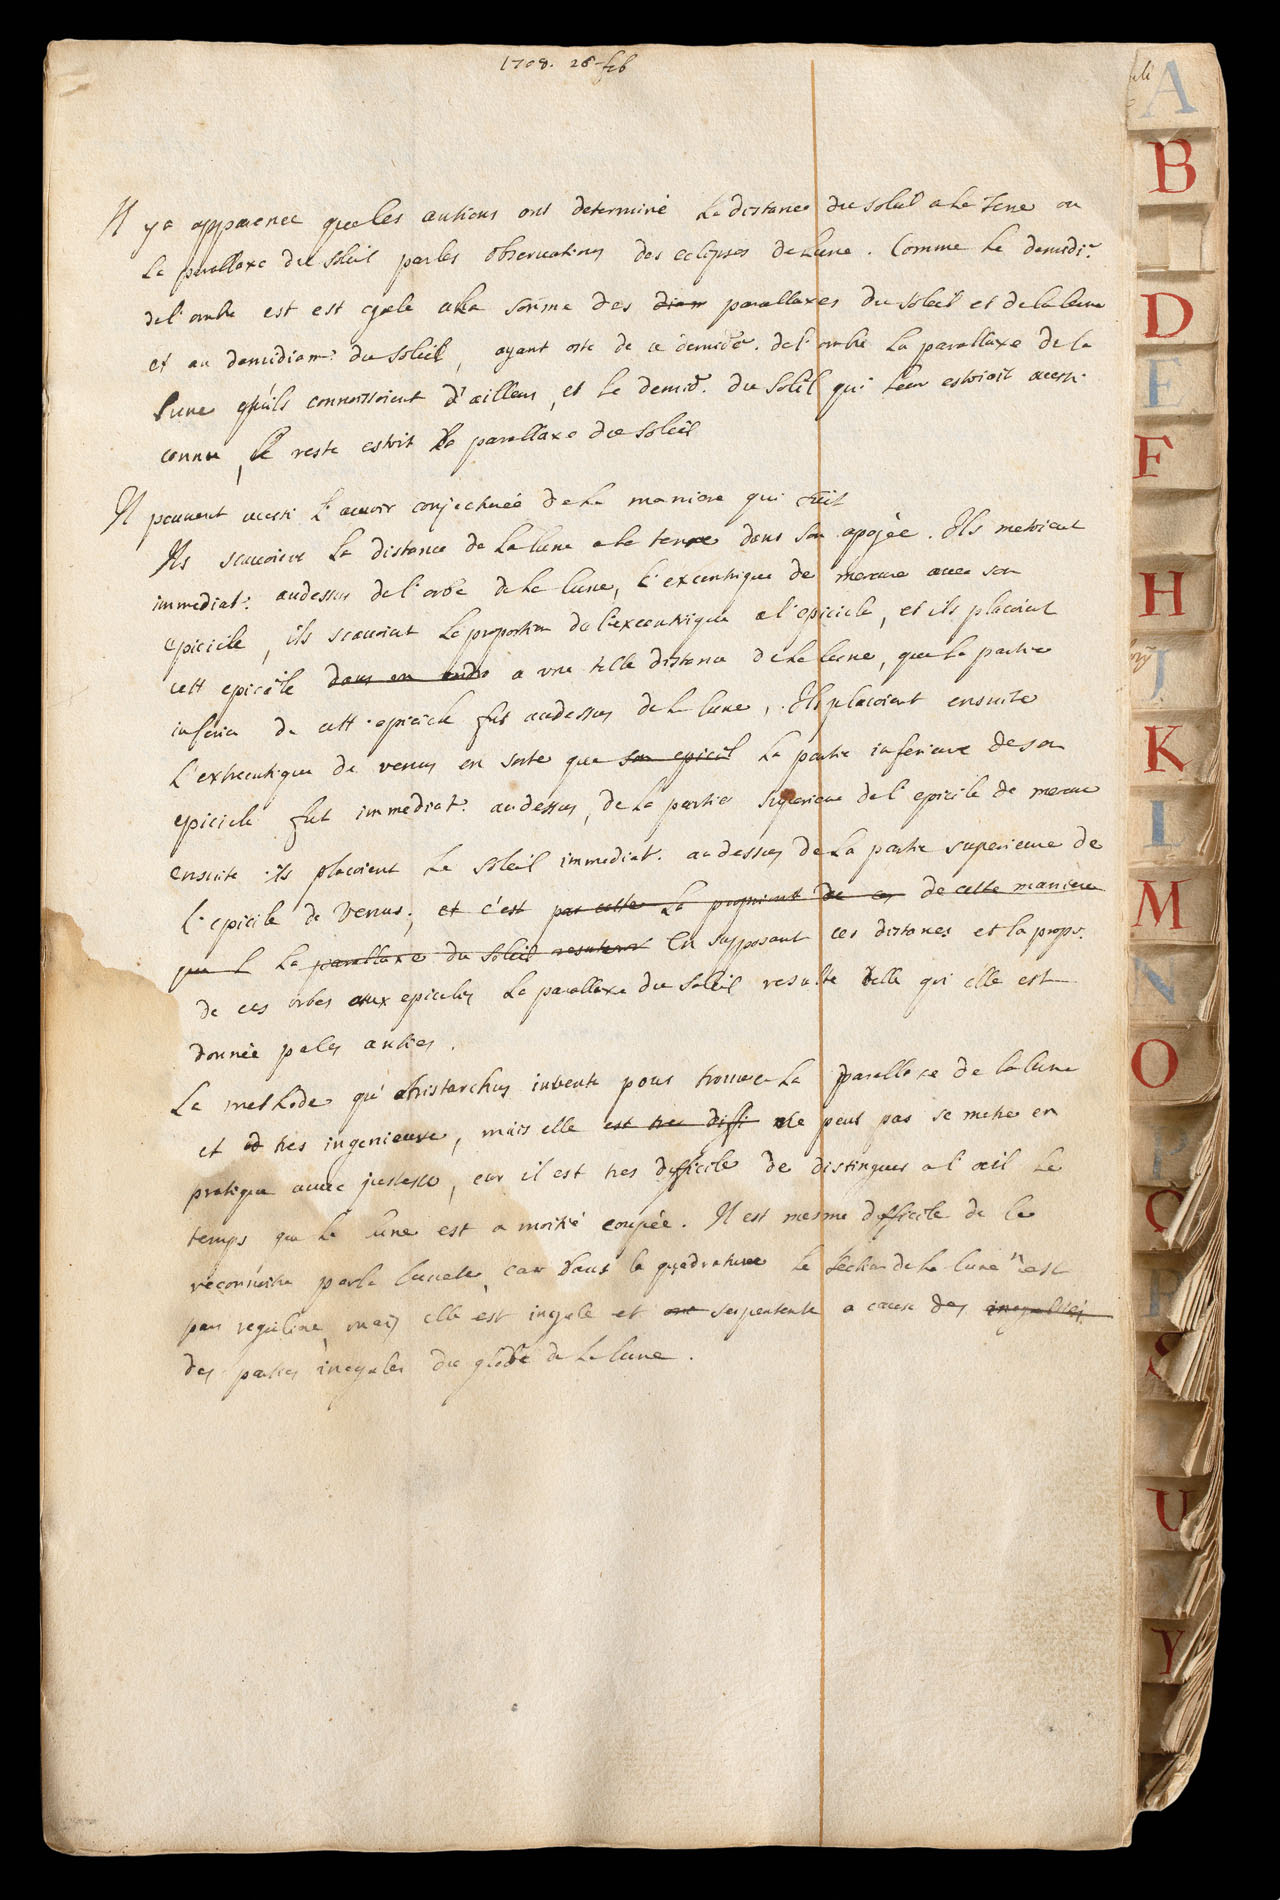 1708. 26 feb
Il y a apparence que les antiens ont determiné la distance du soleil a la terre ou
la parallaxe du soleil par les observations des eclipses de lune. Comme le demidi.
de l'ombre est est egale a la somme des diam parallaxes du soleil et de la lune
et au demidiam. du soleil, ayant oste de ce demid. de l'ombre la parallaxe de la
lune qu'ils connoissoient d'ailleurs, et le demid. du soleil qui leur estoit aussi
connu, le reste estoit la parallaxe du soleil
Il peuvent aussi l'avoir conjecturée de la maniere qui suit
Ils scavoient la distance de la lune a la terre dans son apogée. Ils metoient
immediat. audessus de l'orbe de la lune, l'excentrique de mercure avec son
epicicle, ils scavoient la proportion de l'excentrique a l'epicicle, et ils placoient
cett epicicle dans un endro a une telle distance de la lune, que la partie
inferieu de cett epicicle fut audessus de la lune, Ils placoient ensuite
l'exentrique de venus en sorte que son epicicl la partie inferieure de son
epicicle fut immediat. audessus, de la partie superieure de l'epicicle de mercure
ensuite ils placoient le soleil immediat. audessus de la partie superieure de
l'epicicle de Venus; et c'est par cette la de cette maniere
que l la parallaxe du soleil resulteroit En supposant ces distances et la propo.
de ces orbes aux epicicles la parallaxe du soleil resulte telle qu'elle est
donnée par les antiens.
La methode qu'Aristarchus inventa pour trouver la parallaxe de la lune
et tres ingenieuse, mais elle est tres diffi ne peut pas se metre en
pratique avec justesse, car il est tres difficile de distinguer a l'œil le
temps que la lune est a moitié coupée. Il est mesme difficile de la
reconnoitre par la lunete, car dans la quadrature la section de la lune n'est
pas reguliere, mais elle est inegale et serpentente a cause des inegalitéz
des parties inegales du globe de la lune.
A
B
D
E
F
H
J
K
L
M
N
O
P
Q
R
S
U
Y